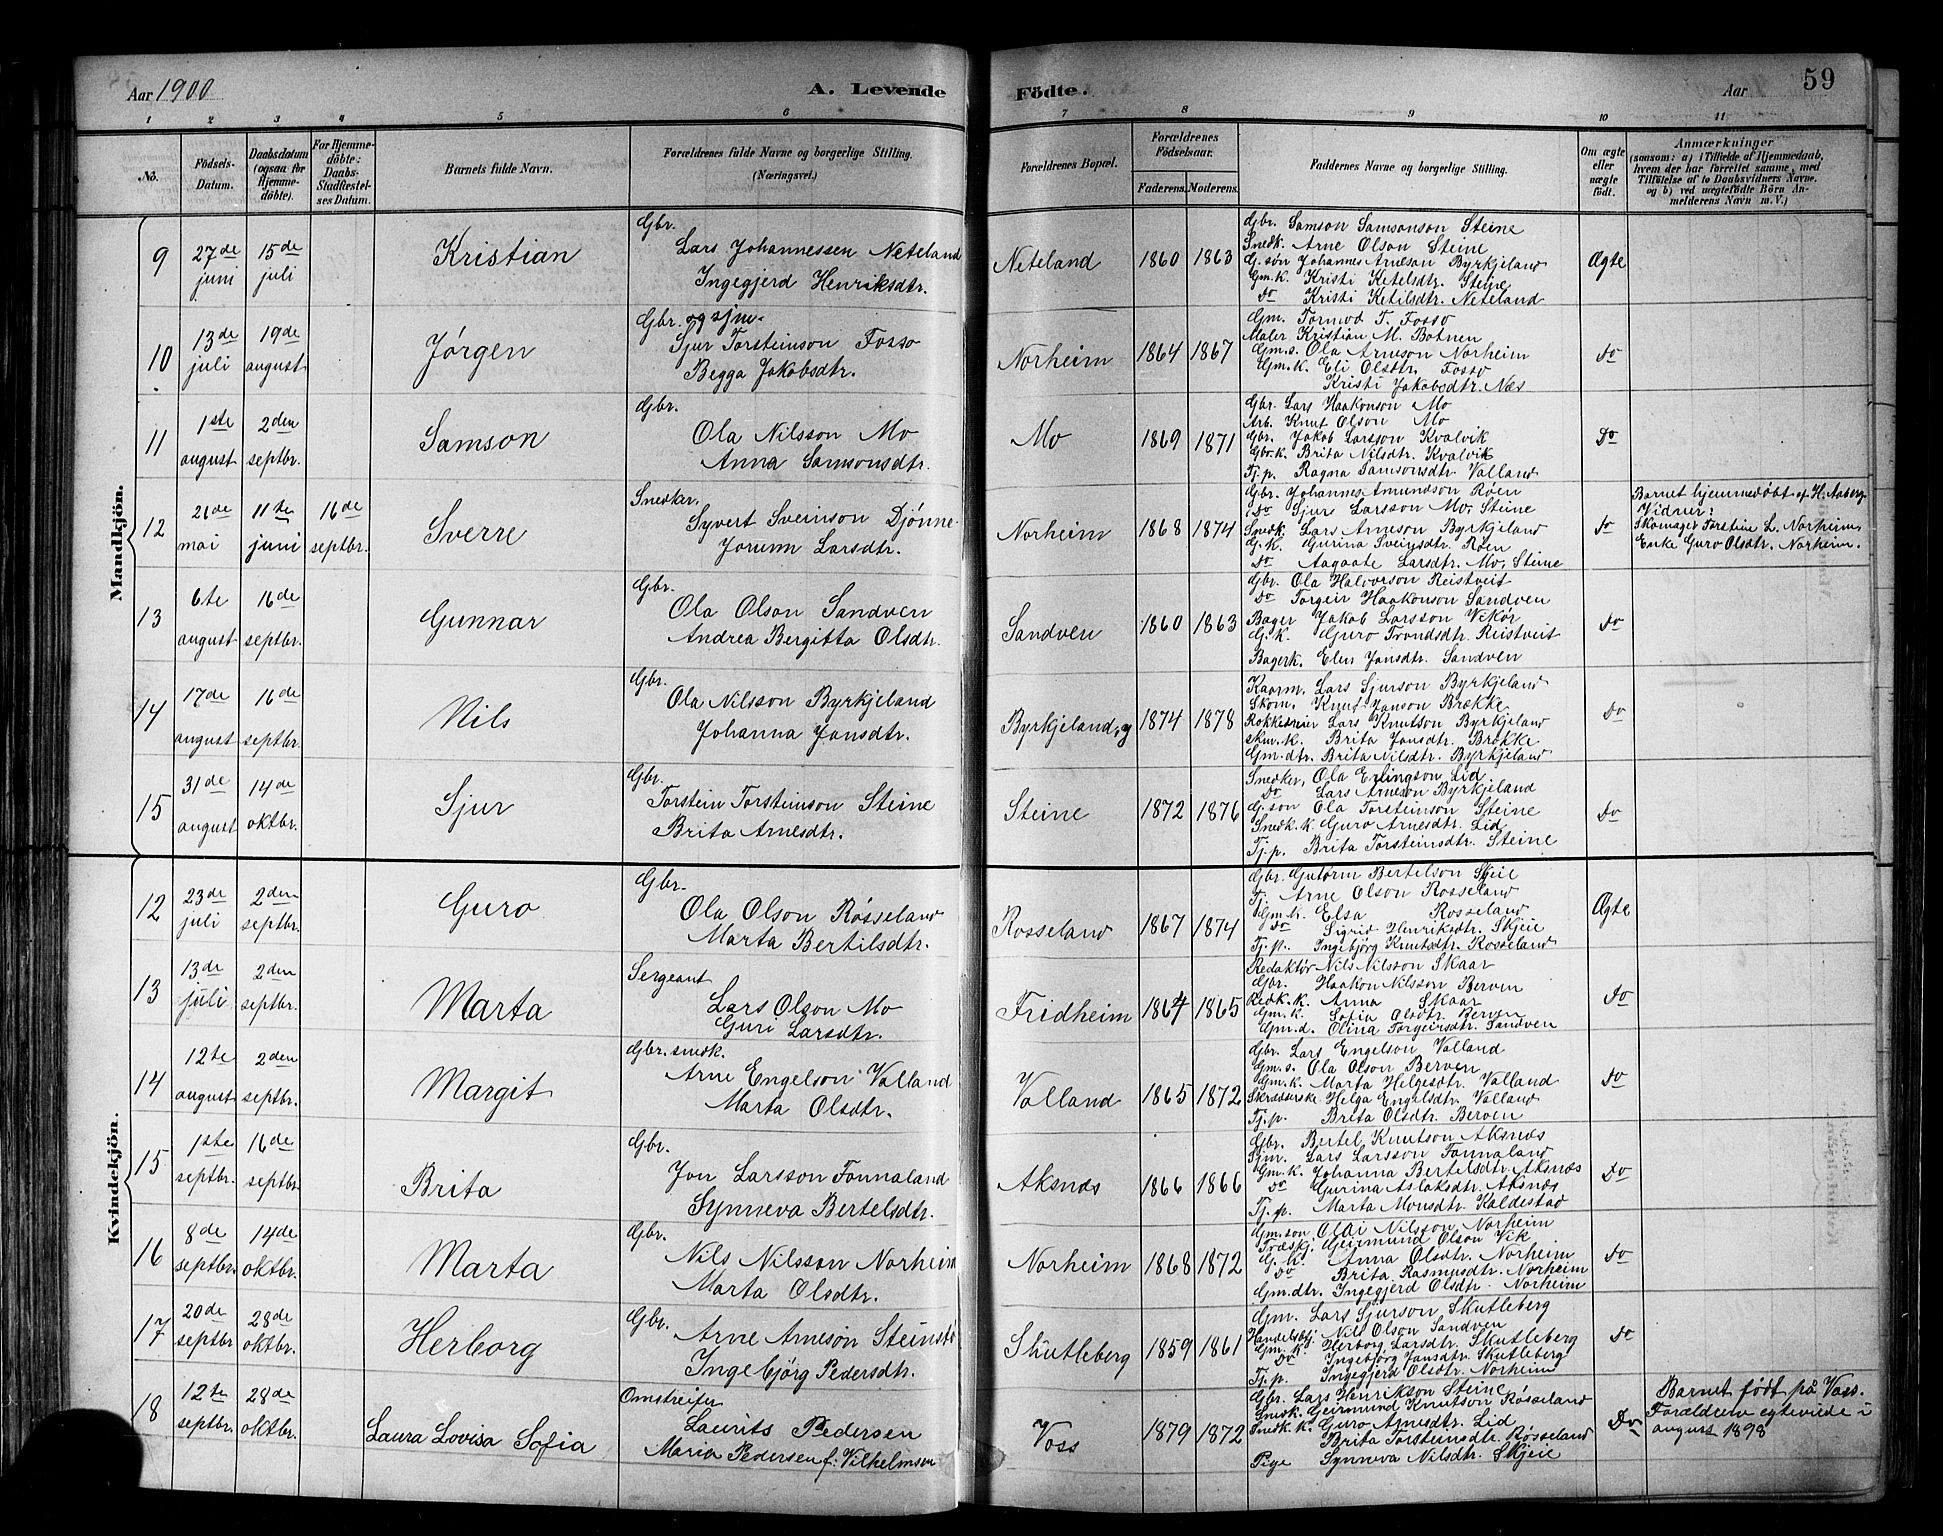 Aar 1900 A. Levende Födte. Aar 59
1 2 3 4 5 6 7 8 9 10 11
No. Födsels-Datum. Daabsdatum (ogsaa for Hjemmedöbte). For Hjemmedöbte: Daabs-Stadfestelses Datum. Barnets fulde Navn. Forældrenes fulde Navne og borgerlige Stilling. (Næringsvei.) Forældrenes Bopæl. Forældrenes Födselsaar. Faderens. Moderens. Faddernes Navne og borgerlige Stilling. Om ægte eller uægte födt. Anmærkninger (saasom: a) i Tilfælde af Hjemmedaab, hvem der har forrettet samme, med Tilföielse af to Daabsvidners Navne, og b) ved uægtefödte Börn Anmelderens Navn m. V.)
Mandkjön.
9 27de juni 15de juli Kristian
Gbr.
Lars Johannessen Neteland
Ingegjerd Henriksdtr.
Neteland 1860 1863
Gbr. Samson Samsonson Steine
Snedk. Arne Olson Steine
G. søn Johannes Arneson Byrkjeland
Gm.k. Kristi Ketelsdtr. Steine
Do Kristi Ketilsdtr. Neteland
Ægte
10 13de juli 19de august Jørgen
Gbr. og sjm.
Sjur Torsteinson Fosso
Begga Jakobsdtr.
Norheim 1864 1867
Gm. Tormod T. Fosso
Maler Kristian M. Botnen
Gm.s. Ola Arneson Norheim
Gm.k. Eli Olsdtr. Fosso
Kristi Jakobsdtr. Næs
Do
11 1ste august 2den septbr. Samson
Gbr.
Ola Nilsson Mo
Anna Samsonsdtr.
Mo 1869 1871
Gbr. Lars Haakonson Mo
Arb. Knut Olson Mo
Gbr. Jakob Larsson Kvalvik
Gbr.k. Brita Nilsdtr. Kvalvik
Tj.p. Ragna Samsonsdtr. Valland
Do
12 26de mai 11te juni 16de septbr. Sverre
Snedker.
Syvert Sveinson Djønne
Jorunn Larsdtr.
Norheim 1868 1874
Gbr. Johannes Amundson Røen
Do Sjur Larsson Mo, Steine
Snedk. Lars Arneson Byrkjeland
G.k. Gurina Sveinsdtr. Røen
Do Aagaate Larsdtr. Mo, Steine
Do
Barnet hjemmedøbt af H. Aaberg.
Vidner:
Skomager Torstein L. Norheim.
Enke Guro Olsdtr. Norheim.
13 6te august 16de septbr. Gunnar
Gbr.
Ola Olson Sandven
Andrea Bergitta Olsdtr.
Sandven 1860 1863
Gbr. Ola Halvorson Reistveit
Do Torgeir Haakonson Sandven
Bager Jakob Larsson Vikør
G.k. Guro Trondsdtr. Reistveit
Bagerk. Elen Jansdtr. Sandven
Do
14 17de august 16de septbr. Nils
Gbr.
Ola Nilsson Byrkjeland
Johanna Jansdtr.
Byrkjeland, y 1874 1878
Kaarm. Lars Sjurson Byrkjeland
Skom. Knut Janson Brække
Rokkedreier Lars Knutson Byrkjeland
skm.k. Brita Jansdtr. Brække
Gm.dtr. Brita Nilsdtr. Byrkjeland
Do
15 31de august 14de oktbr. Sjur
Gbr.
Torstein Torsteinson Steine
Brita Arnesdtr.
Steine 1872 1876
Snedker, Ola Erlingson Lid
Do Lars Arneson Byrkjeland
G.son Ola Torsteinson Steine
Snedk.k. Guro Arnesdtr. Lid
Tj.p. Brita Torsteinsdtr. Steine
Do
Kvindekjön.
12 23de juli 2den septbr. Guro
Gbr.
Ola Olson Røsseland
Marta Bertilsdtr.
Rosseland 1867 1874
Gbr. Gutorm Bertelson Skeie
Tj. Arne Olson Rosseland
Gm.k. Elsa Rosseland
Do Sigrid Henriksdtr. Skjeie
Tj.p. Ingebjørg Knutsdtr. Rosseland
Ægte
13 13de juli 2den septbr. Marta
Sergeant
Lars Olson Mo
Guri Larsdtr.
Fridheim 1864 1865
Redaktør Nils Nilsson Skaar
Gbr. Haakon Nilsson Berven
Redk.k. Anna Skaar
Gm.k. Sofia Olsdtr. Berven
Gm.d. Olina Torgeirsdtr. Sandven
Do
14 12te august 2den septbr. Margit
Gbr. snedk.
Arne Engelson Valland
Marta Olsdtr.
Valland 1865 1872
Gbr. Lars Engelson Valland
Gm.s. Ola Olson Berven
Gm.k. Marta Helgesdtr. Valland
Skrædderske Helga Engelsdtr. Valland
Tj.p. Brita Olsdtr. Berven
Do
15 1ste septbr. 16de septbr. Brita
Gbr.
Jon Larsson Fonnaland
Synneva Bertelsdtr.
Aksnæs 1866 1866
Gbr. Bertel Knutson Aksnæs
Sjm. Lars Larsson Fonnaland
Gm.k. Johanna Bertelsdtr. Aksnæs
Do Gurina Aslaksdtr. Aksnæs
Tj.p. Marta Monsdtr. Kaldestad
Do
16 8de septbr. 14de oktbr. Marta
Gbr.
Nils Nilsson Norheim
Marta Olsdtr.
Norheim 1868 1872
Gm.son Oddi Nilsson Norheim
Træskj. Geirmund Olson Vik
G.k. Anna Olsdtr. Norheim
Do Brita Rasmusdtr. Norheim
Gm.dtr. Ingegjerd Olsdtr. Norheim
Do
17 20de septbr 28de oktbr. Herborg
Gbr.
Arne Arneson Steinstø
Ingebjørg Pedersdtr.
Skutleberg 1859 1861
Gm. Lars Sjurson Skutleberg
Handelsbtj. Nils Olson Sandven
Gm.k. Herborg Larsdtr. Skutleberg
Do Ingebjørg Jansdtr. Skutleberg
Tj.p. Ingegjerd Olsdtr. Norheim
Do
18 12te septbr. 28de oktbr. Laura Lovisa Sofia
Omstreifer
Laurits Pedersen
Maria Pedersen f: Vilhelmsen
Voss 1879 1872
Gbr. Lars Henrikson Steine
Snedk. Geirmund Knutson Røsseland
Snedk.k. Guro Arnesdtr. Lid
Brita Torsteinsdtr. Røsseland
Pige Synneva Nilsdtr. Skjeie
Do
Barnet født på Voss.
Forældrene egteviede i
august 1898